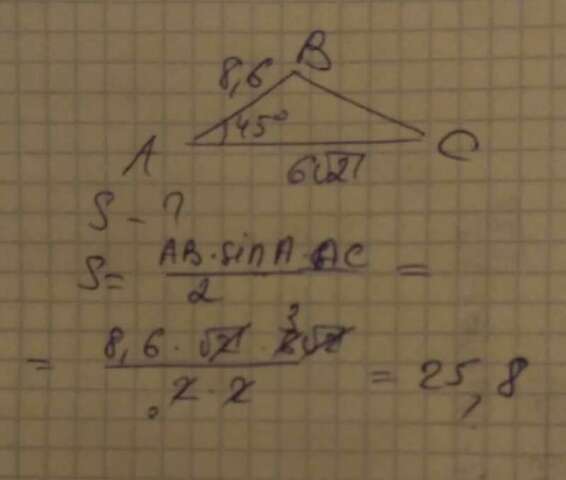 B
8,6
45°
A
C
6√2
S - ?
S = AB · sin A · AC / 2 =
= 8,6 · √2 · 6√2 3 / 2 · 2 = 25,8